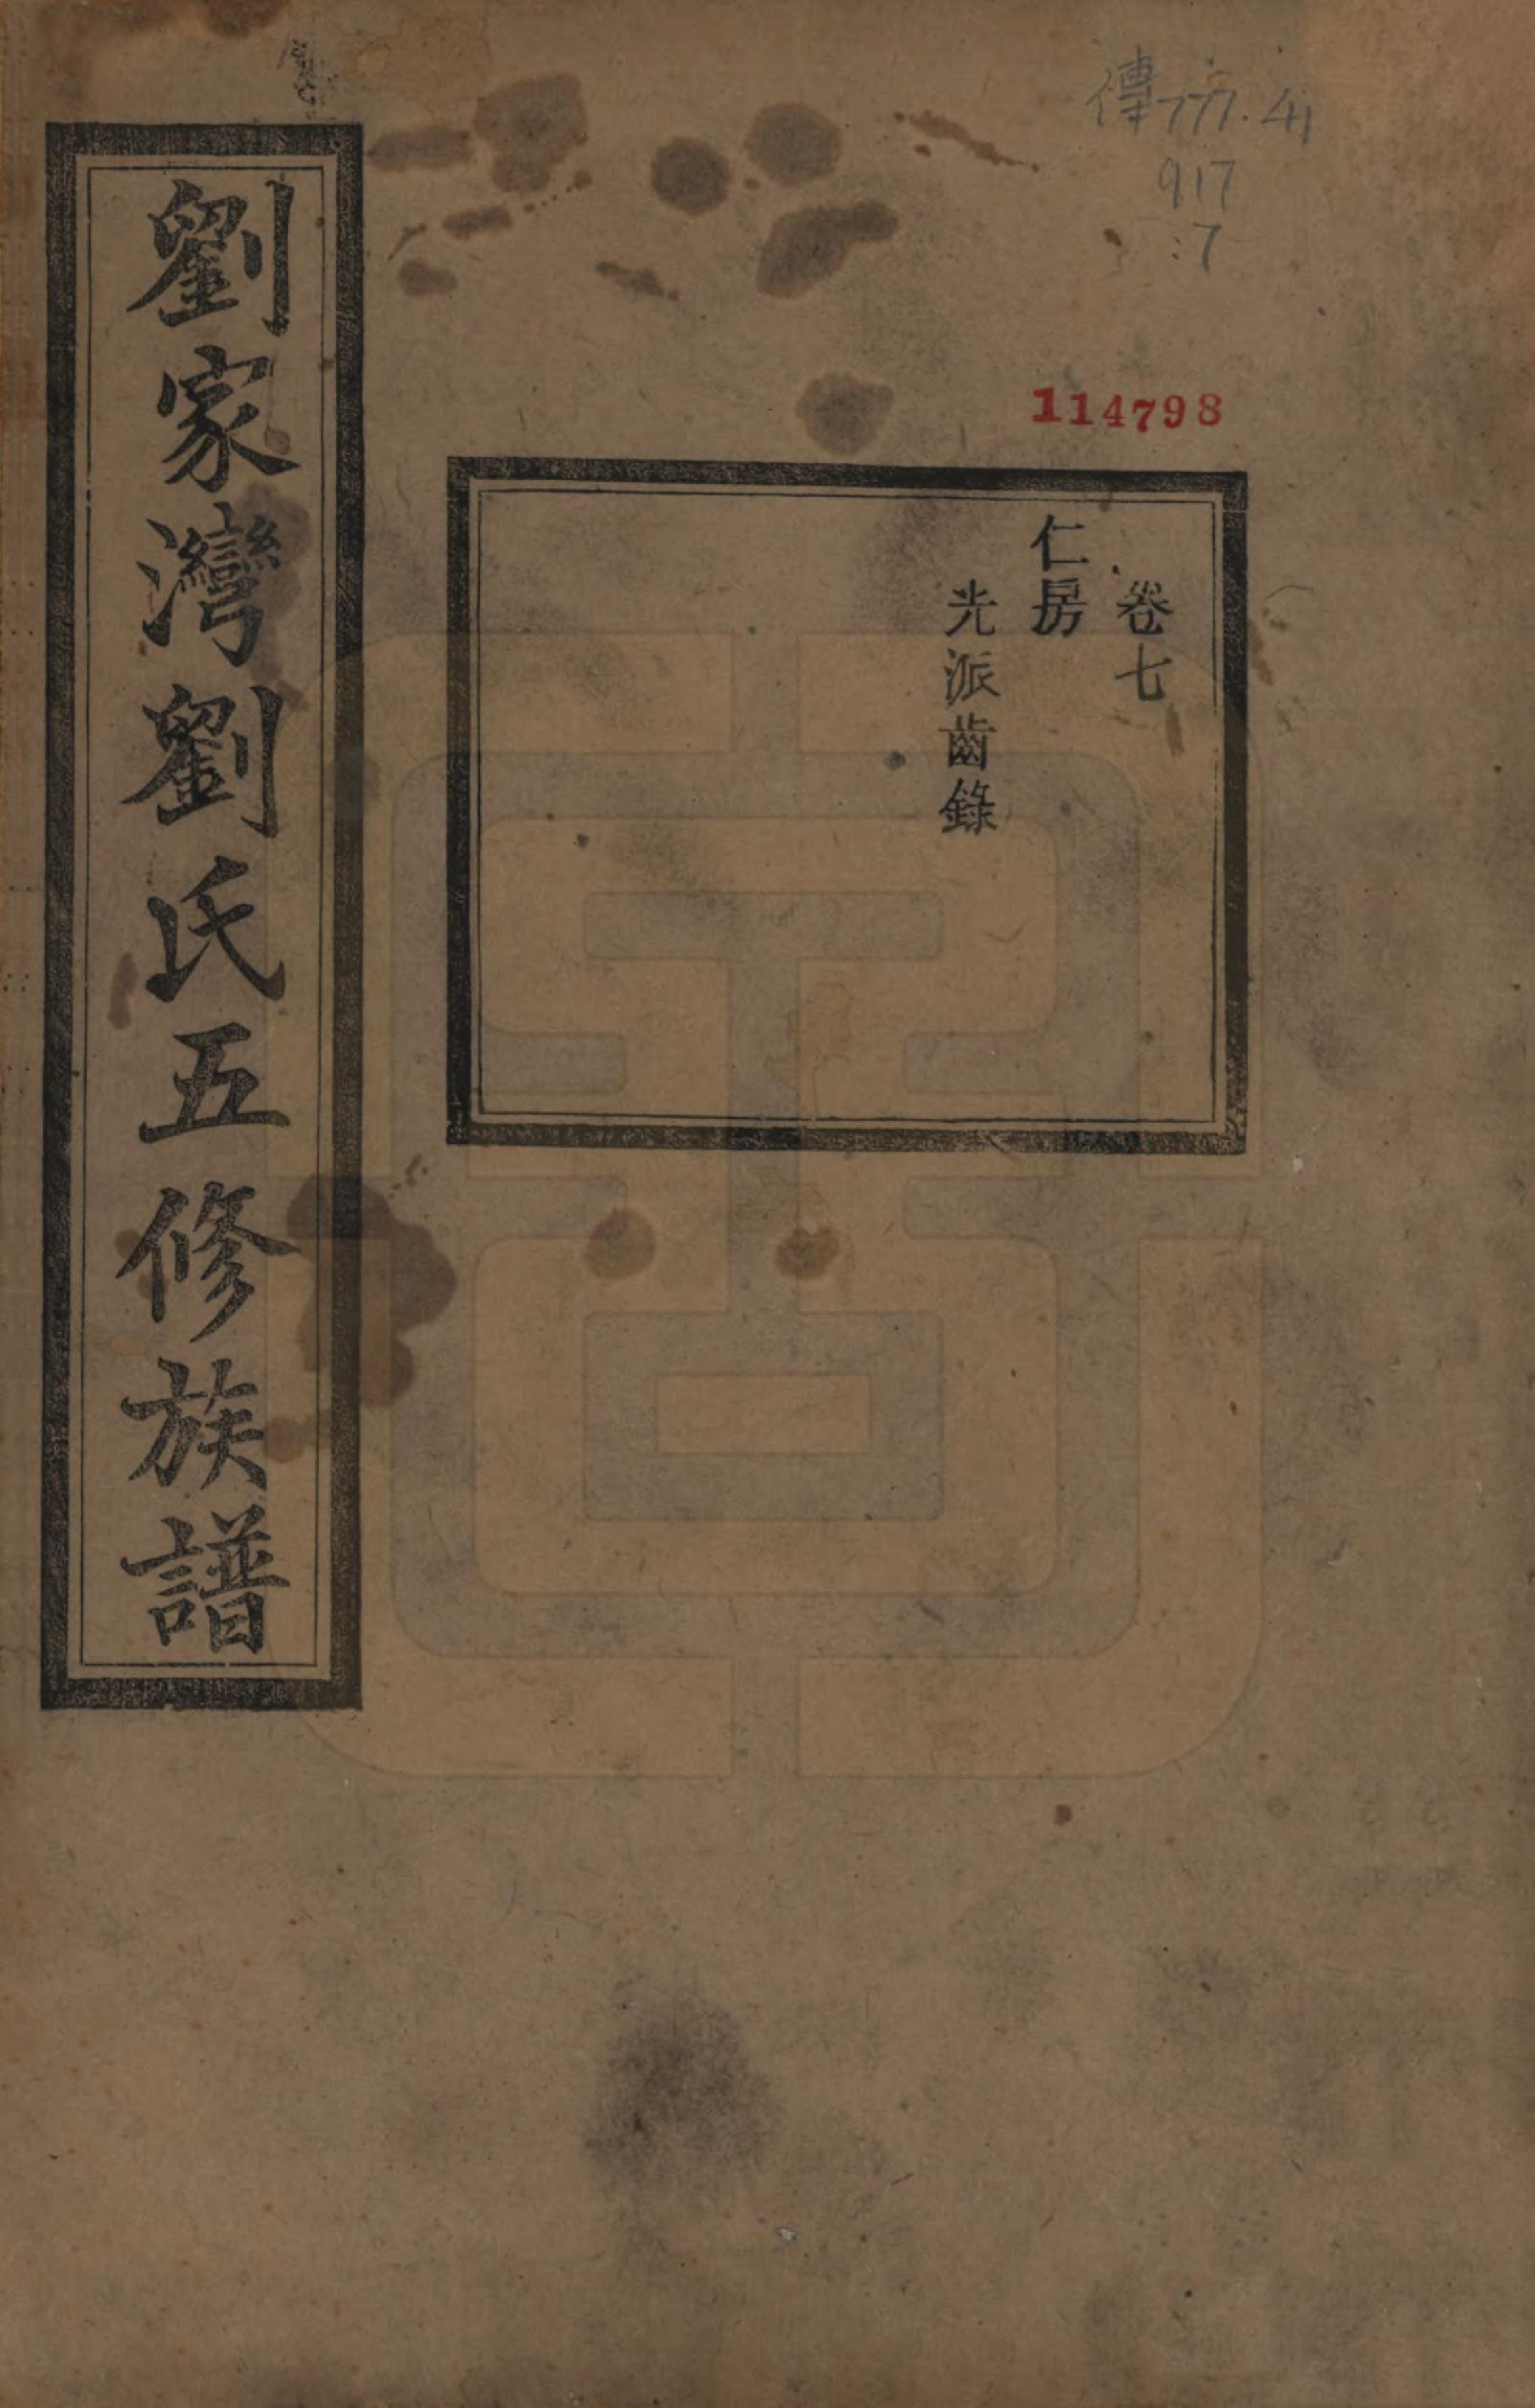 傳777.41
917
:7
114798
卷七
仁房
光派齒錄
劉家灣劉氏五修族譜